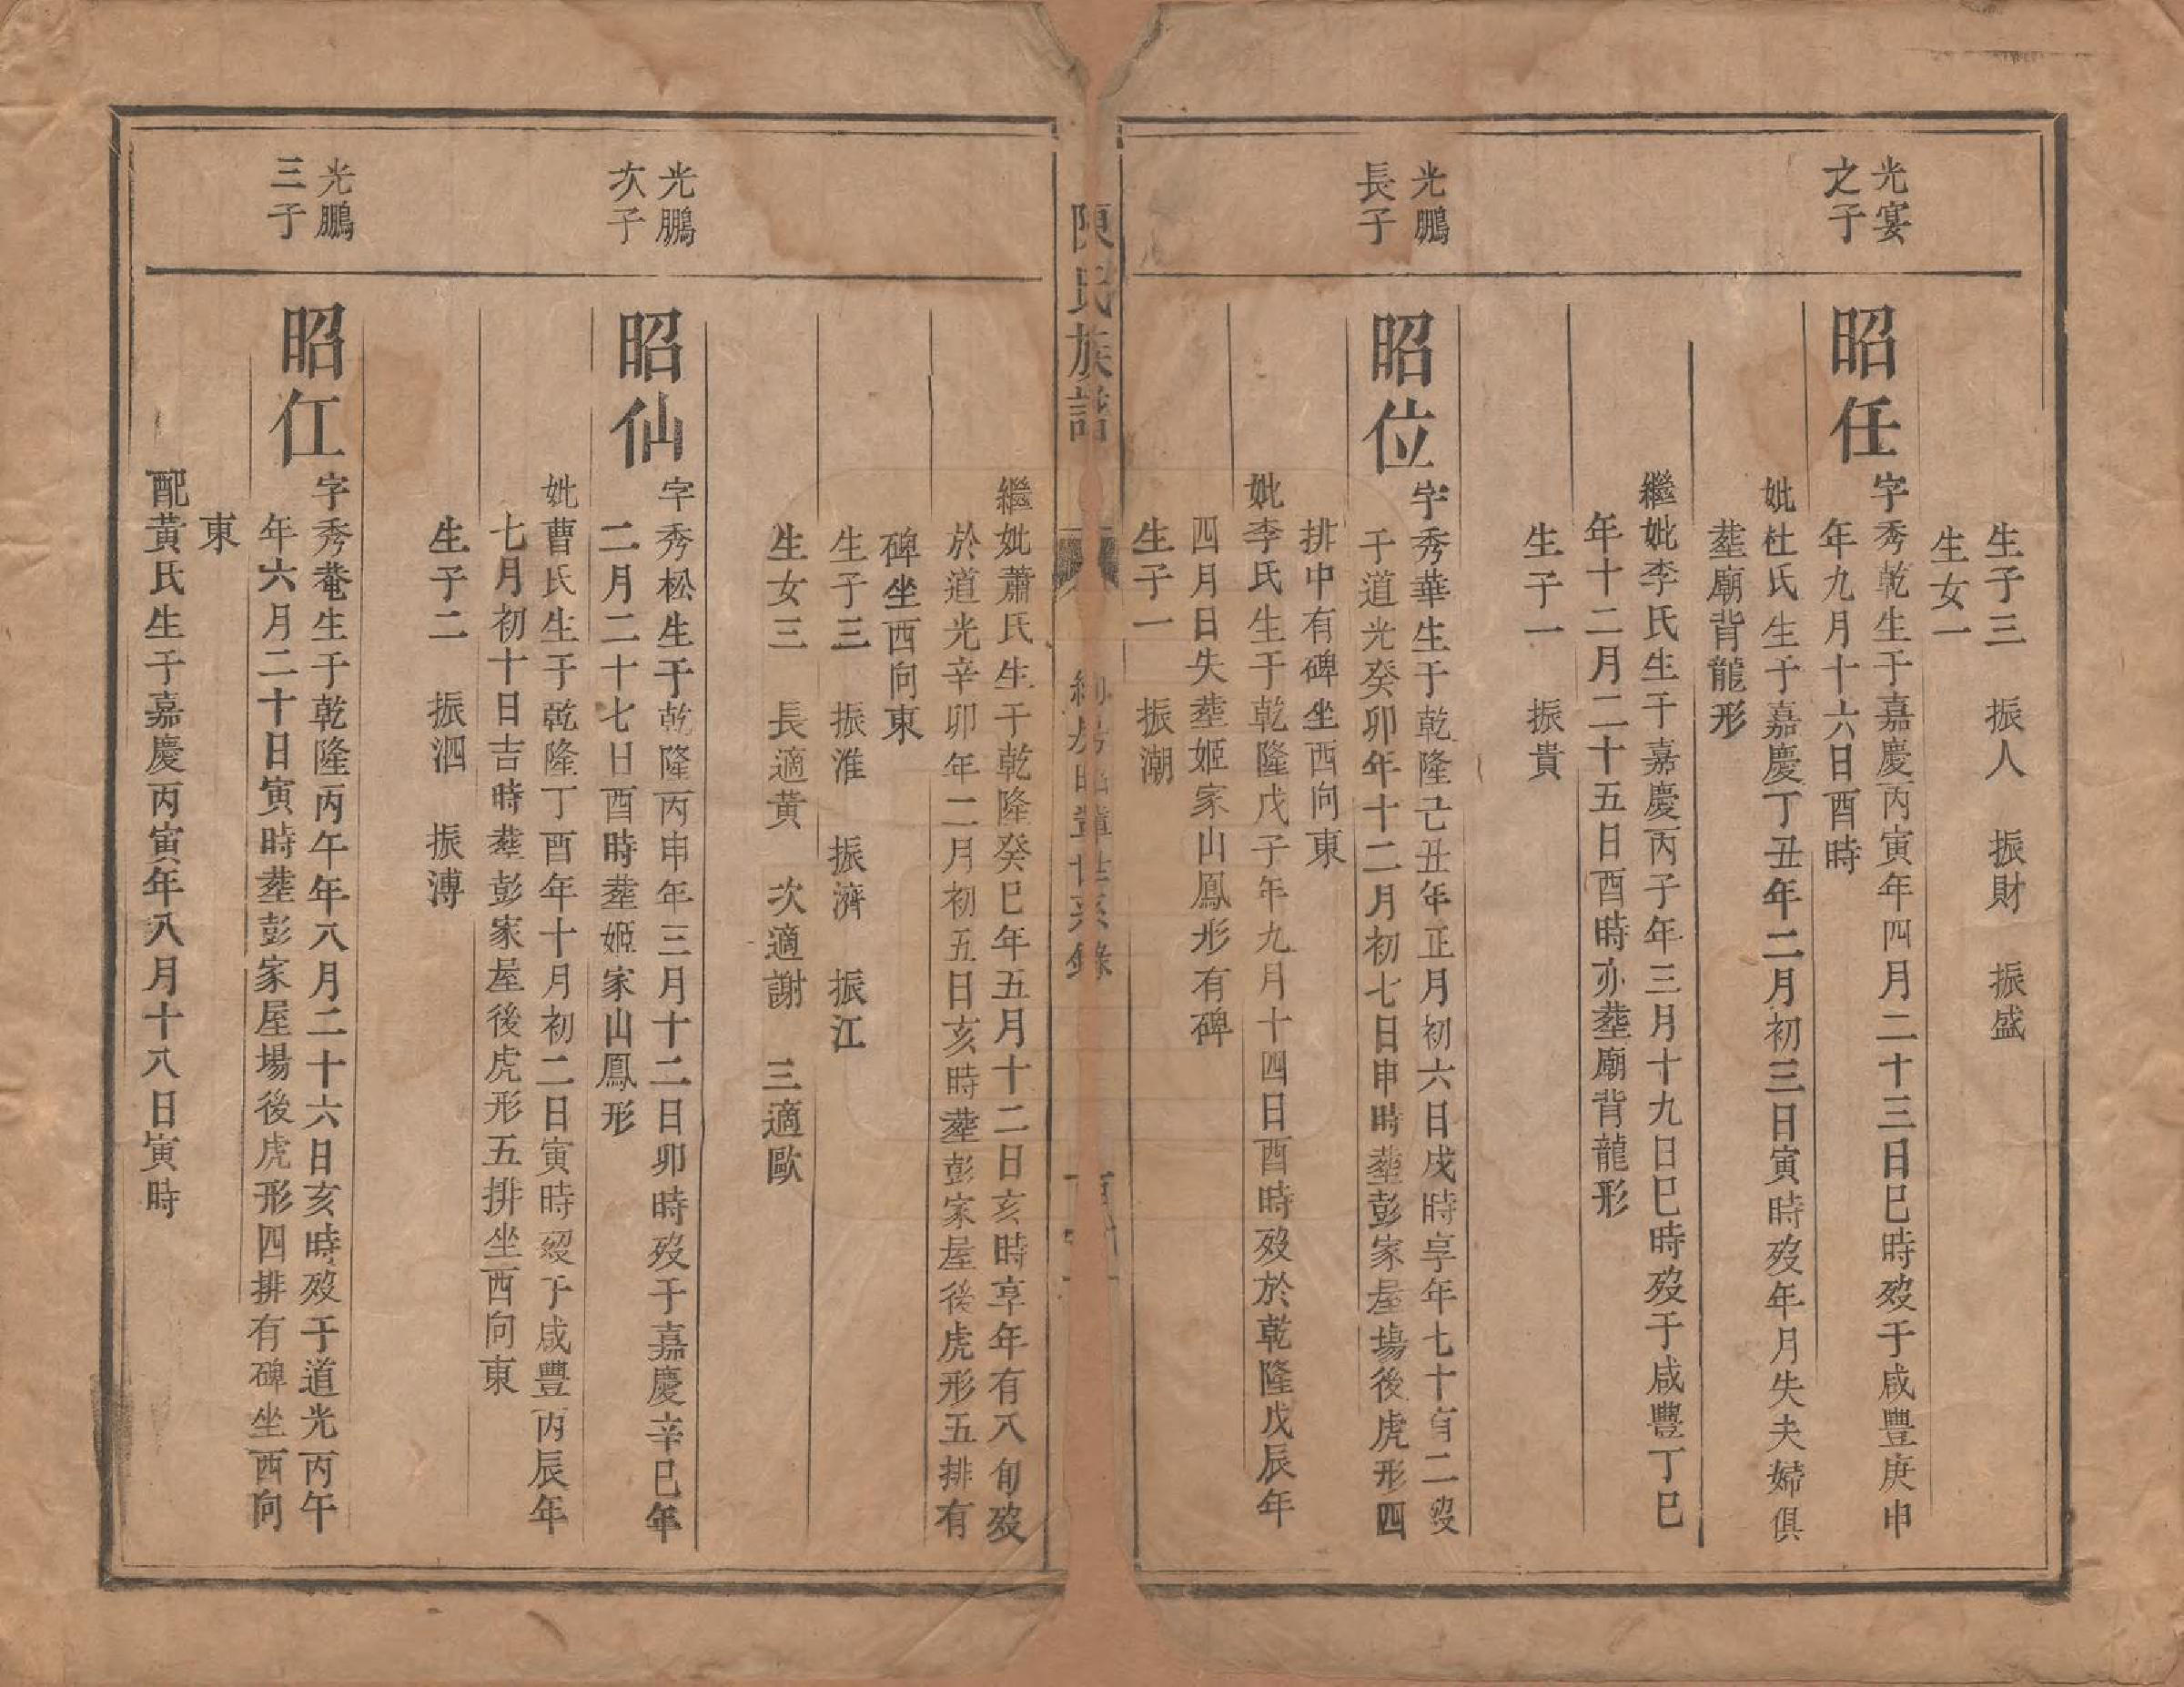 生子三　振人　振財　振盛
生女一
光宴
之子
昭任
字秀乾生于嘉慶丙寅年四月二十三日巳時歿于咸豐庚申
年九月十六日酉時
妣杜氏生于嘉慶丁丑年二月初三日寅時歿年月失夫婦俱
塟廟背龍形
繼妣李氏生于嘉慶丙子年三月十九日巳時歿于咸豐丁巳
年十二月二十五日酉時亦塟廟背龍形
生子一　振貴
光鵬
長子
昭位
字秀華生于乾隆己丑年正月初六日戌時享年七十有二歿
于道光癸卯年十二月初七日申時塟彭家屋場後虎形四
排中有碑坐西向東
妣李氏生于乾隆戊子年九月十四日酉時歿於乾隆戊辰年
四月日失塟姬家山鳳形有碑
生子一　振潮
陳氏族譜
世系錄
繼妣蕭氏生于乾隆癸巳年五月十二日亥時享年有八旬歿
於道光辛卯年二月初五日亥時塟彭家屋後虎形五排有
碑坐西向東
生子三　振淮　振濟　振江
生女三　長適黃　次適謝　三適歐
光鵬
次子
昭仙
字秀松生于乾隆丙申年三月十二日卯時歿于嘉慶辛巳年
二月二十七日酉時塟姬家山鳳形
妣曹氏生于乾隆丁酉年十月初二日寅時歿于咸豐丙辰年
七月初十日吉時塟彭家屋後虎形五排坐西向東
生子二　振泗　振溥
光鵬
三子
昭仜
字秀菴生于乾隆丙午年八月二十六日亥時歿于道光丙午
年六月二十日寅時塟彭家屋場後虎形四排有碑坐西向
東
配黃氏生于嘉慶丙寅年八月十八日寅時